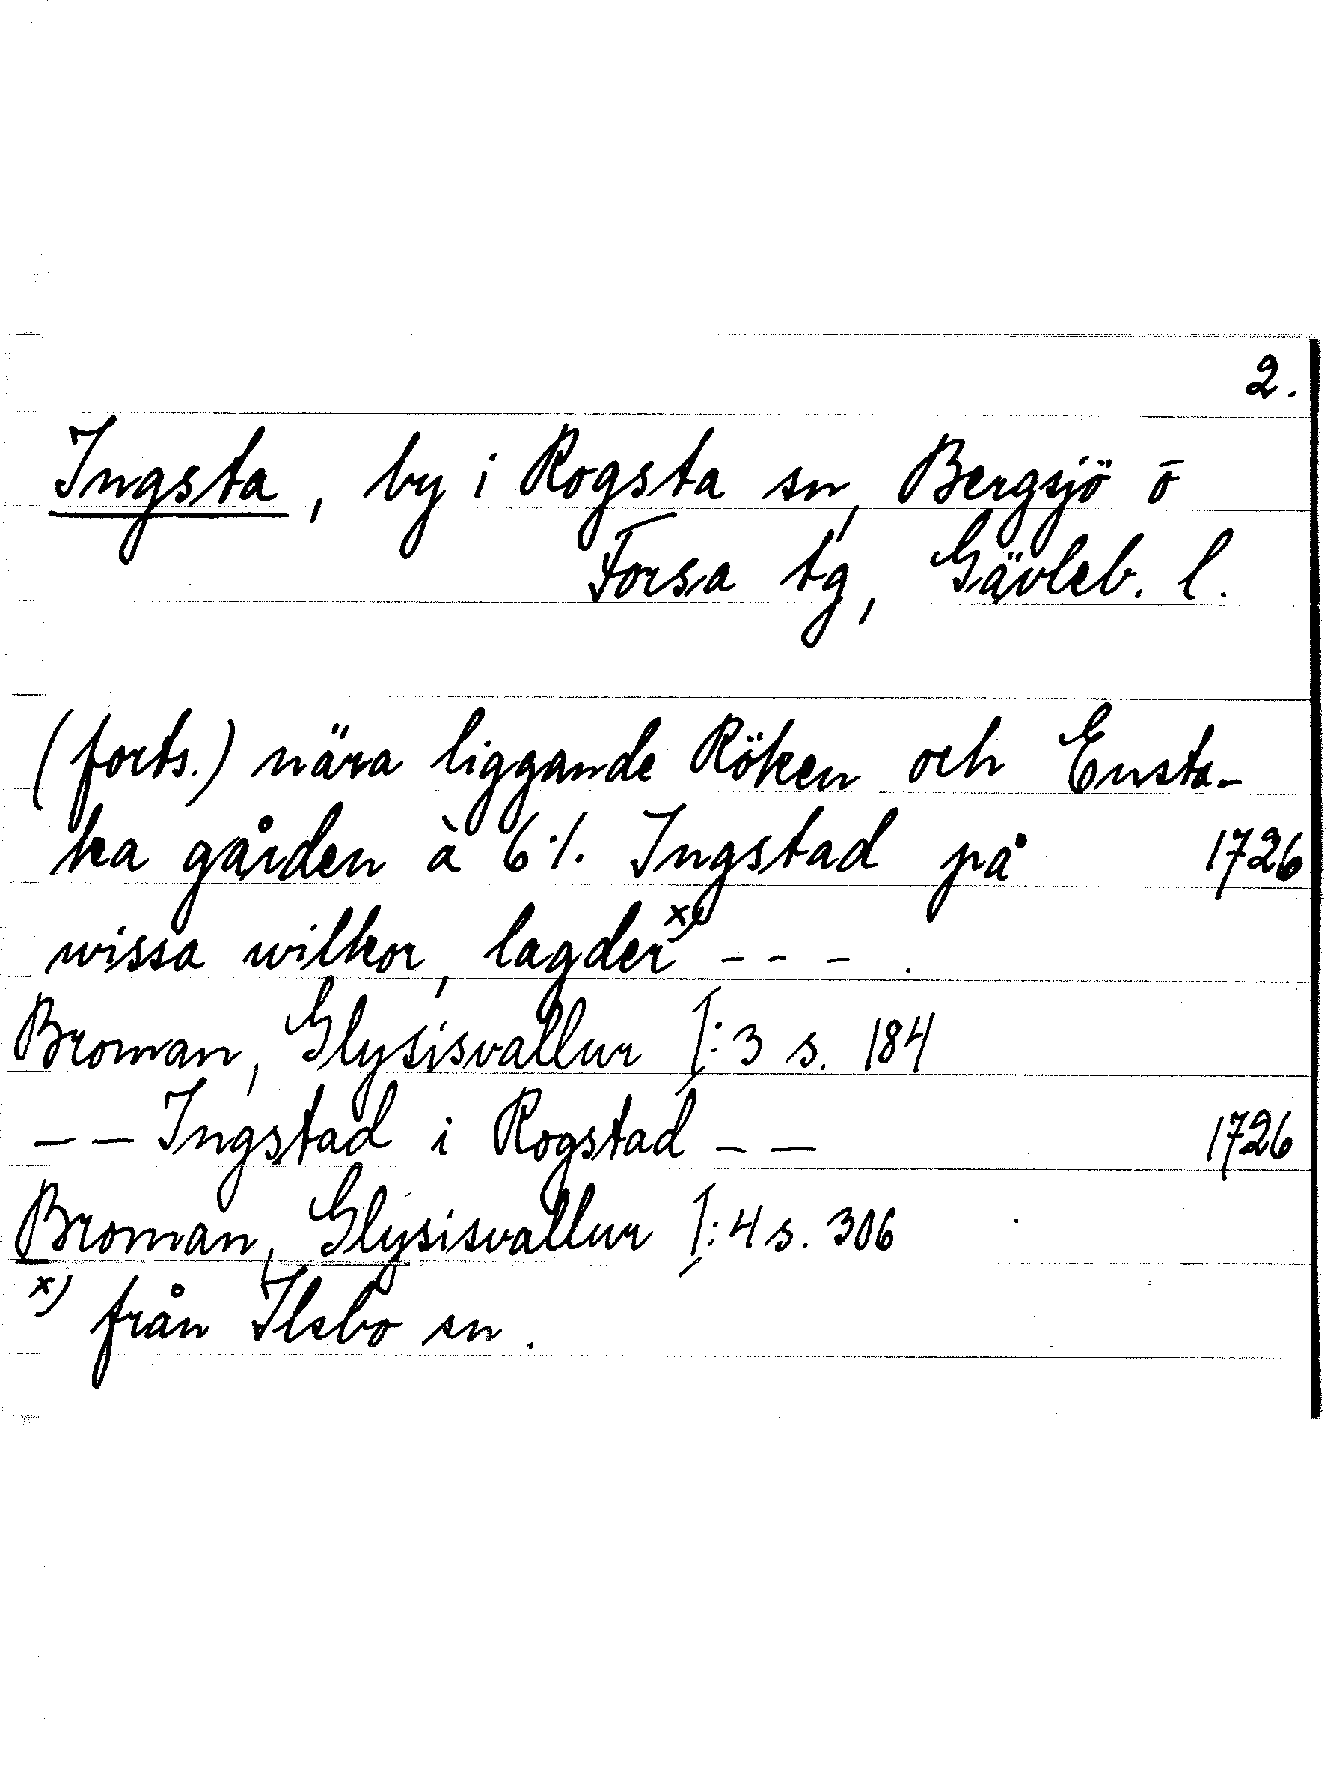 2.
Ingsta, by i Rogsta sn, Bergsjö o
Forsa tg, Gävleb. l.
(forts.) nära liggande Röken och Ensta-
ka gården à 6 ·/. Ingstad på 1726
wissa wilkor, lagder x) - - -
Broman, Glysisvallur I:3 s. 184
— — Ingstad i Rogstad — — 1726
Broman, Glysisvallur I:4 s. 306
x) från Ilsbo sn.